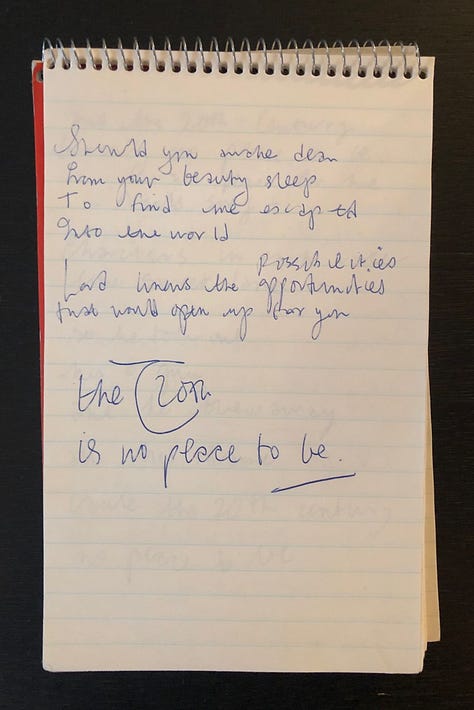 Should you awake dear
From your beauty sleep
To find me escaped
Into the world
possibilities
Lord knows the opportunities
that would open up for you
the 20th
is no place to be.